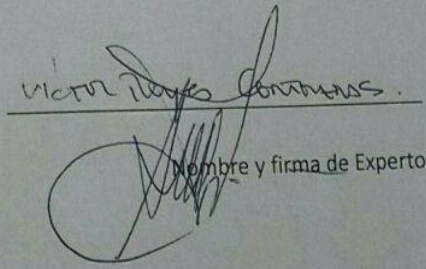 Victor Reyes Contreras.
Nombre y firma de Experto